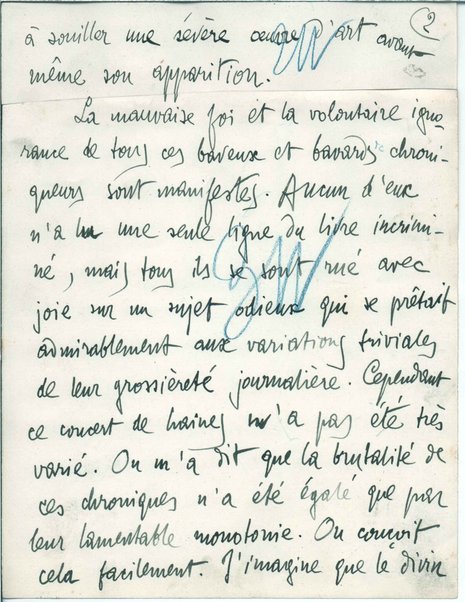 2
à souiller une sévère œuvre d'art avant
même son apparition.
La mauvaise foi et la volontaire igno-
rance de tous ces baveux et bavards chroni-
queurs sont manifestes. Aucun d'eux
n'a lu une seule ligne du livre incrimi-
né, mais tous ils se sont rué avec
joie sur un sujet odieux qui se prêtait
admirablement aux variations triviales
de leur grossièreté journalière. Cependant
ce concert de haines m'a pas été très
varié. On m'a dit que la brutalité de
ces chroniques n'a été égalé que par
leur lamentable monotonie. On conçoit
cela facilement. J'imagine que le divin